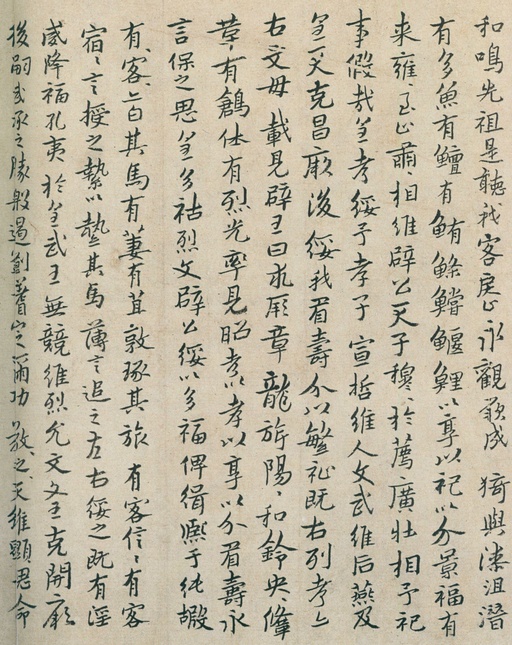 和鳴先祖是聽我客戾止永觀厥成 猗與漆沮潛
有多魚有鱣有鮪鰷鱨鰋鯉以享以祀以介景福有
来雍〻至止肅〻相維辟公天子穆〻於薦廣牡相予祀
事假哉皇考綏予孝子宣哲維人文武維后燕及
皇天克昌厥後綏我眉壽介以繁祉既右列考亦
右文母 載見辟王曰求厥章龍旂陽〻和鈴央〻鞗
革有鶬休有烈光率見昭考以孝以享以介眉壽永
言保之思皇多祜烈文辟公綏以多福俾緝熙于純嘏
有〻客〻亦白其馬有萋有苴敦琢其旅有客信〻有客
宿〻言授之縶以縶其馬薄言追之左右綏之既有淫
威降福孔夷 於皇武王無競維烈允文文王克開厥
後嗣武受之勝殷遏劉耆定爾功 敬〻之〻天維顯思命